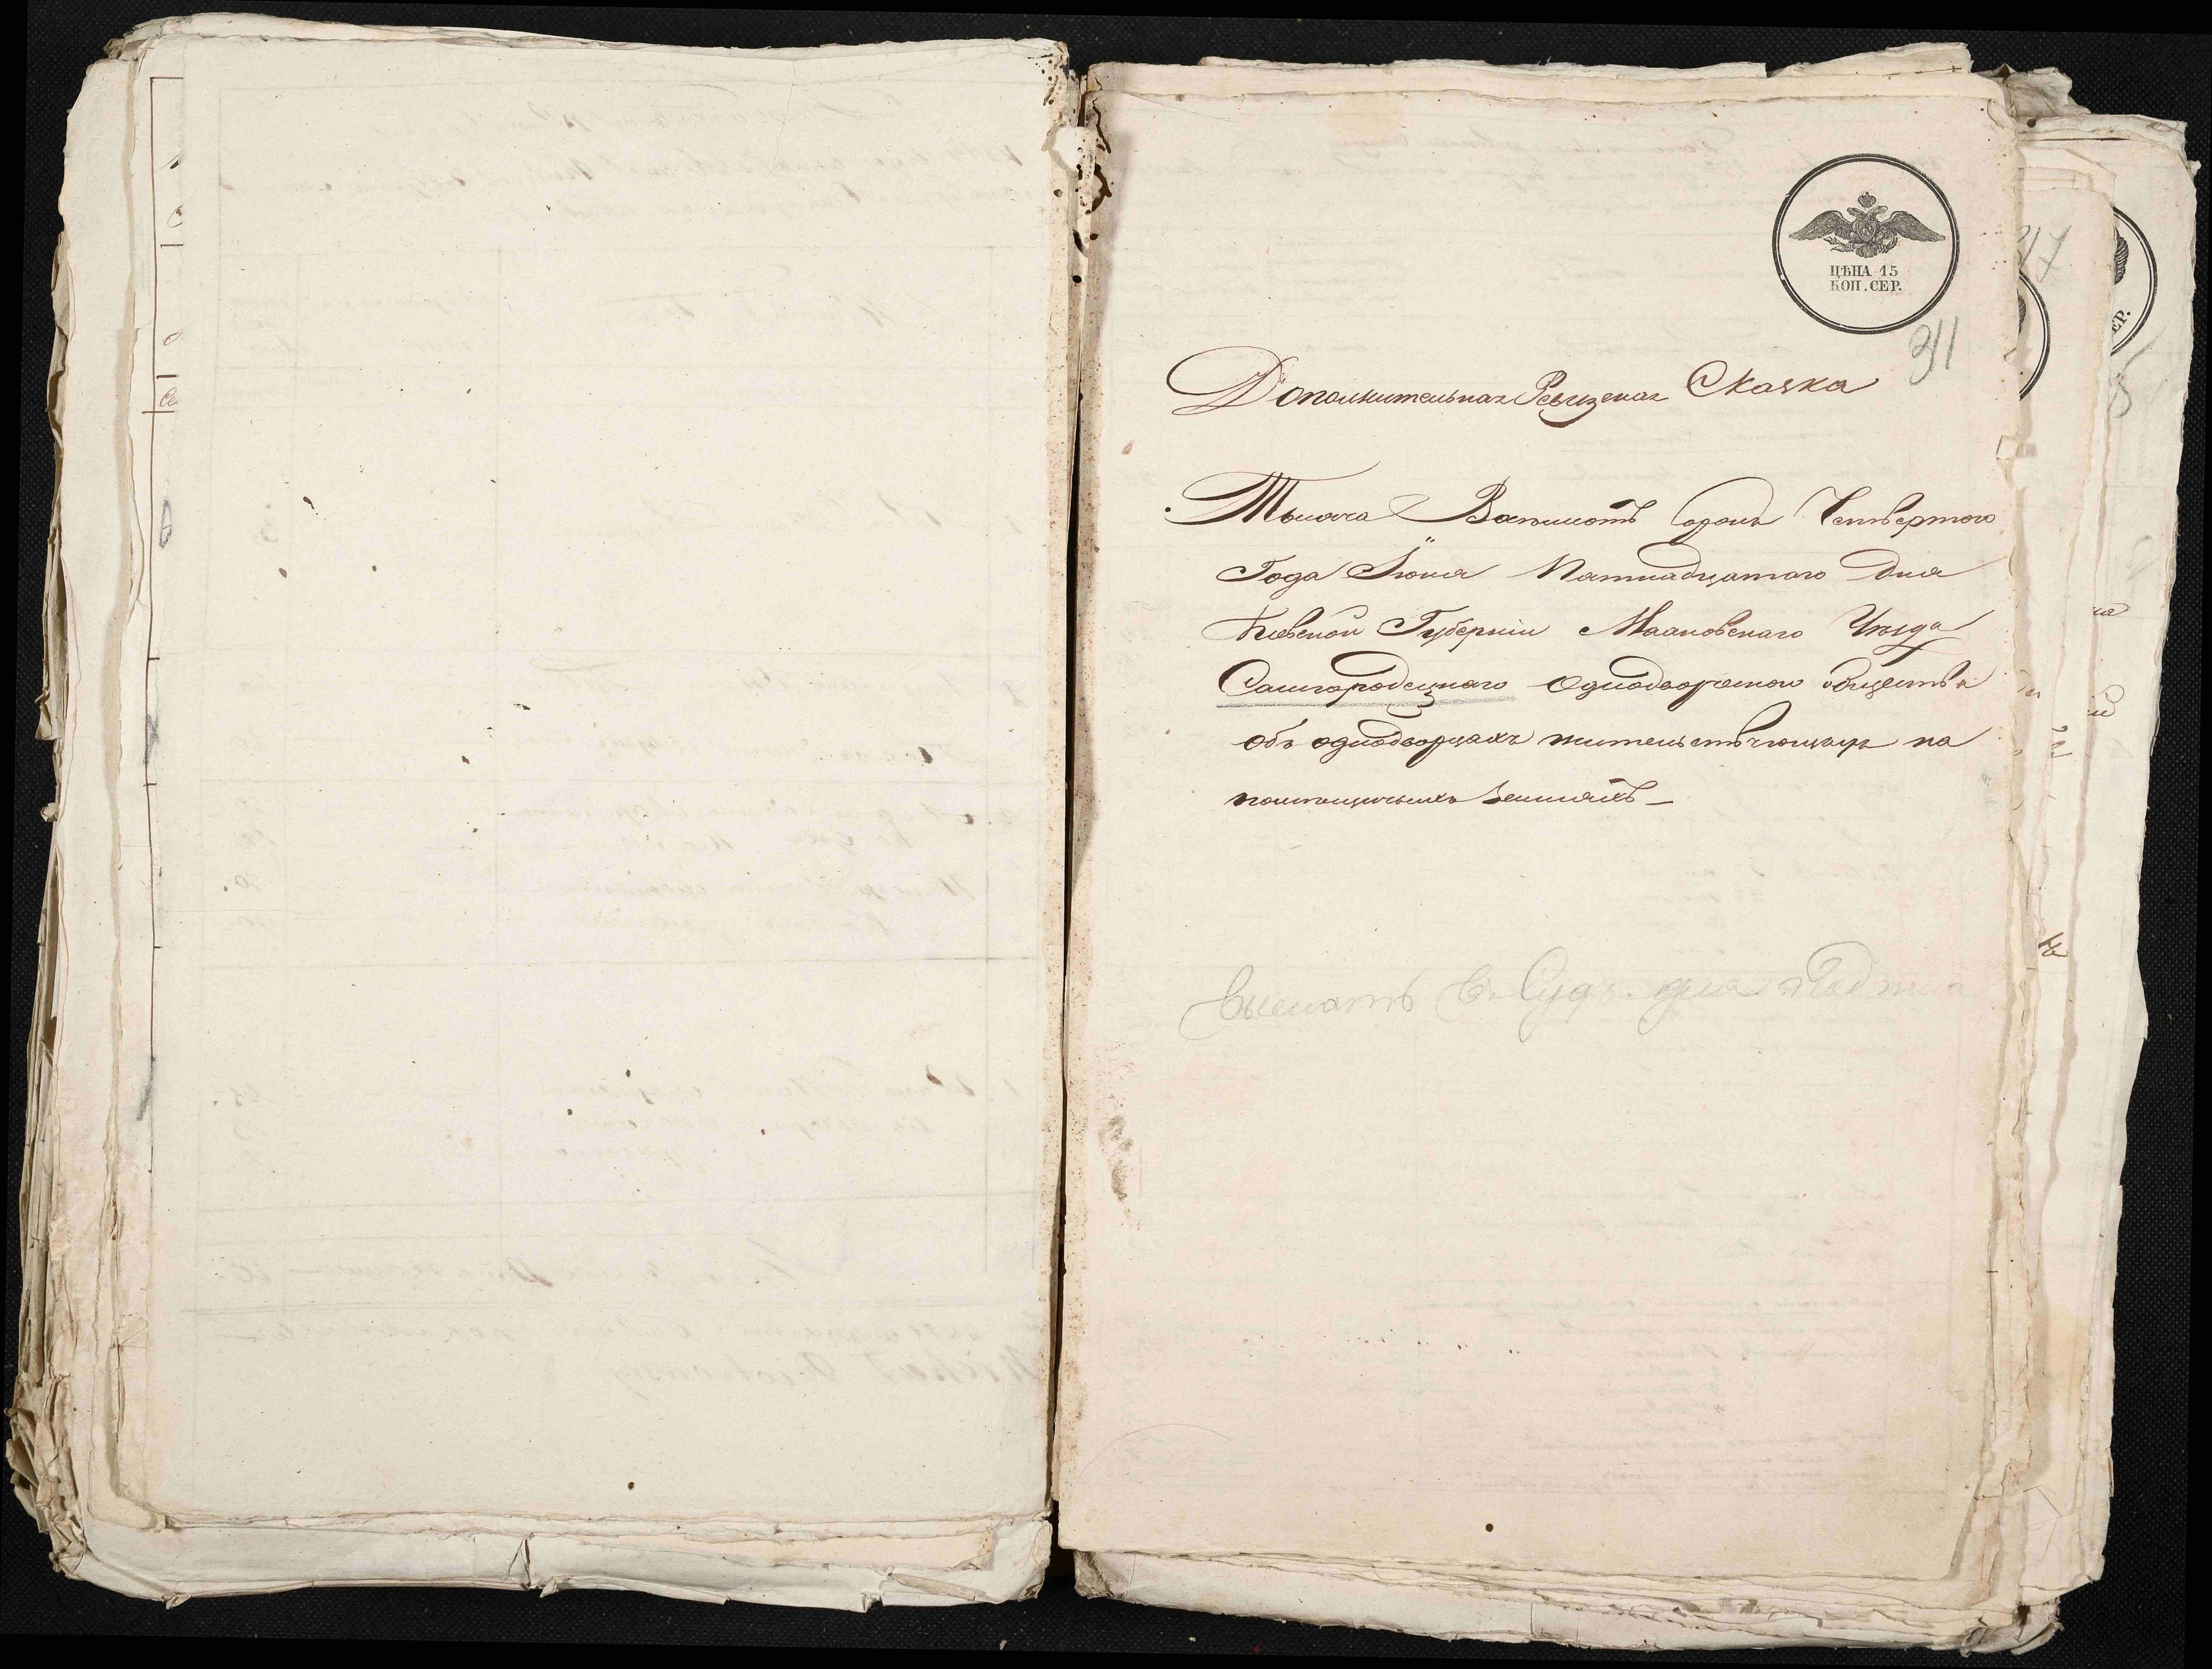 ЦѢНА 15
КОП. СЕР.
311
Дополнительная Ревизская Сказка
Тысяча Восемсотъ сорокъ Четвертого
Года Іюня Пятнадцатого дня
Кіевской Губерніи Махновскаго Уѣзда
Самгородецкаго Однодворческого общества
объ однодворцахъ жительствующихъ на
помѣщичьихъ земляхъ
выслать въ Судъ для